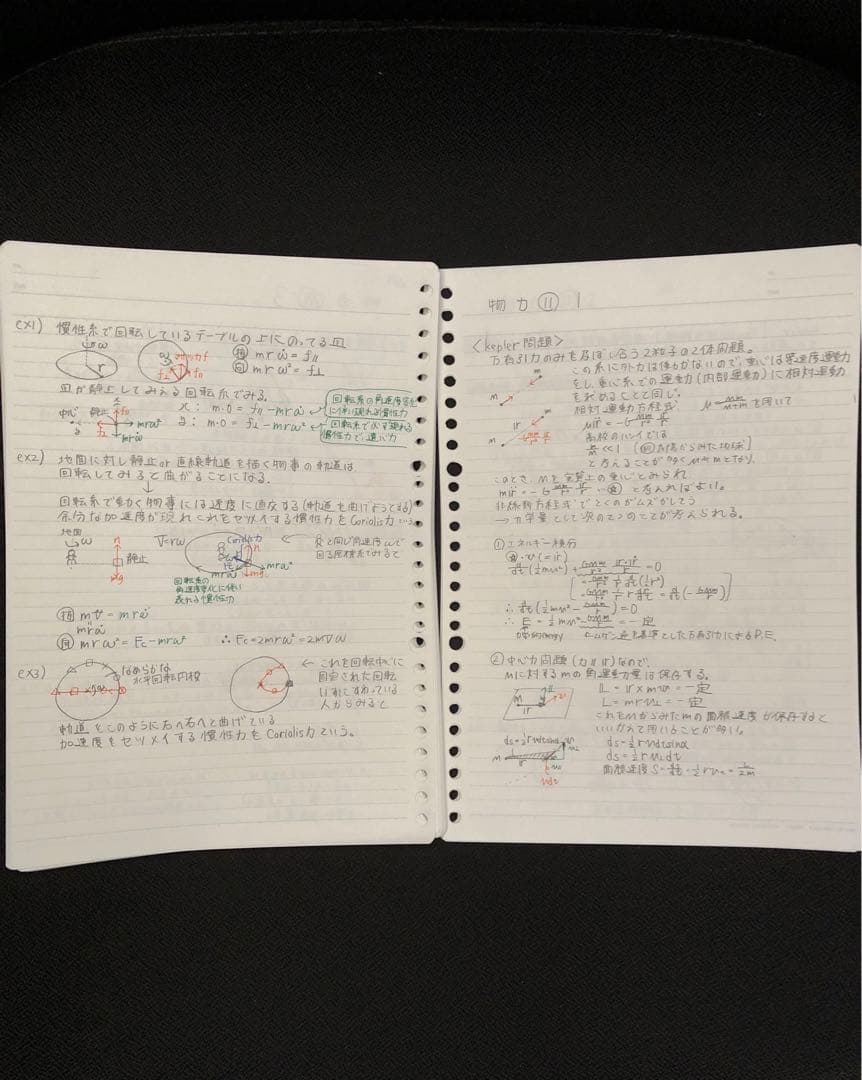 ex1) 慣性系で回転しているテーブルの上にのってる皿
ω
r
マサツ力f
f⊥ f∥
接 mrω̇ = f∥
向 mrω² = f⊥
皿が静止してみえる回転系でみる。
中心 静止 f∥
f⊥ mrω²
mrω̇
x: m・0 = f∥ - mrω̇
y: m・0 = f⊥ - mrω²
回転系の角速度変化に伴い現れる慣性力
回転系で必ず現れる慣性力で、遠心力
ex2) 地面に対し静止or直線軌道を描く物事の軌道は
回転してみると曲がることになる。
↓
回転系で動く物事には速度に直交する(軌道を曲げようとする)
余分な加速度が現れこれをセツメイする慣性力をCoriolis力という。
地面
n
静止
mg
V=rω
Coriolis力
n
Fc
mrω²
mrω̇ mg
回転系の角速度変化に伴い表れる慣性力
と同じ角速度ωで
回る座標系でみると
接 mv̇ = mrω̇
mrω̇
向 mrω² = Fc - mrω²
∴ Fc = 2mrω² = 2mVω
ex3)
なめらかな
水平回転円板
← これを回転中心に
固定された回転
いすにすわっている
人からみると
軌道をこのように右へ右へと曲げている
加速度をセツメイする慣性力をCoriolis力という。
物力⑪ 1
<kepler問題>
万有引力のみを及ぼし合う2粒子の2体問題。
この系に外力は働かないので、重心は等速度運動
をし重心系での運動(内部運動)は相対運動
を求めることと同じ。
相対運動方程式 μ=mM/m+M を用いて
μr̈ = -G mM/r² r/r
高校のハンイでは
m/M ≪ 1 (例 太陽からみた地球)
と考えることが多く μ≒m となり、
このとき、Mを実質上の重心とみられ、
mr̈ = -G mM/r² r/r と考えればよい。
非線形方程式でとくのがムズかしそう
→ 力学量として次の2つのことが考えられる。
① エネルギー積分
d/dt(½mv²) + GmM/r² r・ṙ/r = 0
∴ d/dt(½mv² - GmM/r) = 0
∴ E = ½mv² - GmM/r = 一定
力学的energy
←ムゲン遠を基準とした万有引力によるP.E.
② 中心力問題(力∥r)なので、
Mに対するmの角運動量は保存する。
L = r × mv = 一定
L = mrv⊥ = 一定
これをMからみたmの面積速度が保存すると
いいかえて用いることが多い。
ds=½rvdtsinα
M
r
vdt
ds=½rvdtsinα
ds=½rv⊥dt
面積速度 S=ds/dt=½rv⊥=L/2m